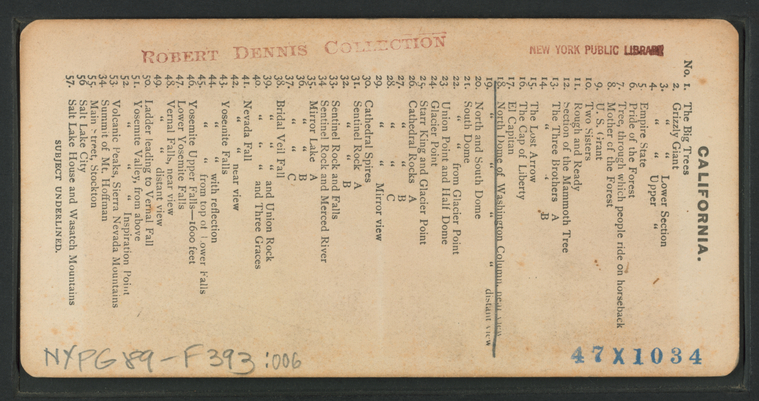 ROBERT DENNIS COLLECTION
NEW YORK PUBLIC LIBRARY
CALIFORNIA.
No. 1. The Big Trees
2. Grizzly Giant
3. " " Lower Section
4. " " Upper "
5. Empire State
6. Pride of the Forest
7. Tree, through which people ride on horseback
8. Mother of the Forest
9. U.S. Grant
10. Two Sisters
11. Rough and Ready
12. Section of the Mammoth Tree
13. The Three Brothers A
14. " " " B
15. The Lost Arrow
16. The Cap of Liberty
17. El Capitan
18. North Dome of Washington Column, near view
19. " " " " distant view
20. North and South Dome
21. South Dome
22. " " from Glacier Point
23. Union Point and Half Dome
24. Glacier Point
25. Starr King and Glacier Point
26. Cathedral Rocks A
27. " " B
28. " " C
29. " " Mirror view
30. Cathedral Spires
31. Sentinel Rock A
32. " " B
33. Sentinel Rock and Falls
34. Sentinel Rock and Merced River
35. Mirror Lake A
36. " " B
37. " " C
38. Bridal Veil Fall
39. " " " and Union Rock
40. " " " and Three Graces
41. Nevada Fall
42. " " near view
43. Yosemite Falls
44. " " with reflection
45. " " from top of Lower Falls
46. Yosemite Upper Falls—1600 feet
47. Lower Yosemite Falls
48. Vernal Falls, near view
49. " " distant view
50. Ladder leading to Vernal Fall
51. Yosemite Valley, from above
52. " " Inspiration Point
53. Volcanic Peaks, Sierra Nevada Mountains
54. Summit of Mt. Hoffman
55. Main Street, Stockton
56. Salt Lake City
57. Salt Lake House and Wasatch Mountains
SUBJECT UNDERLINED.
NYPG89-F393:006
47X1034